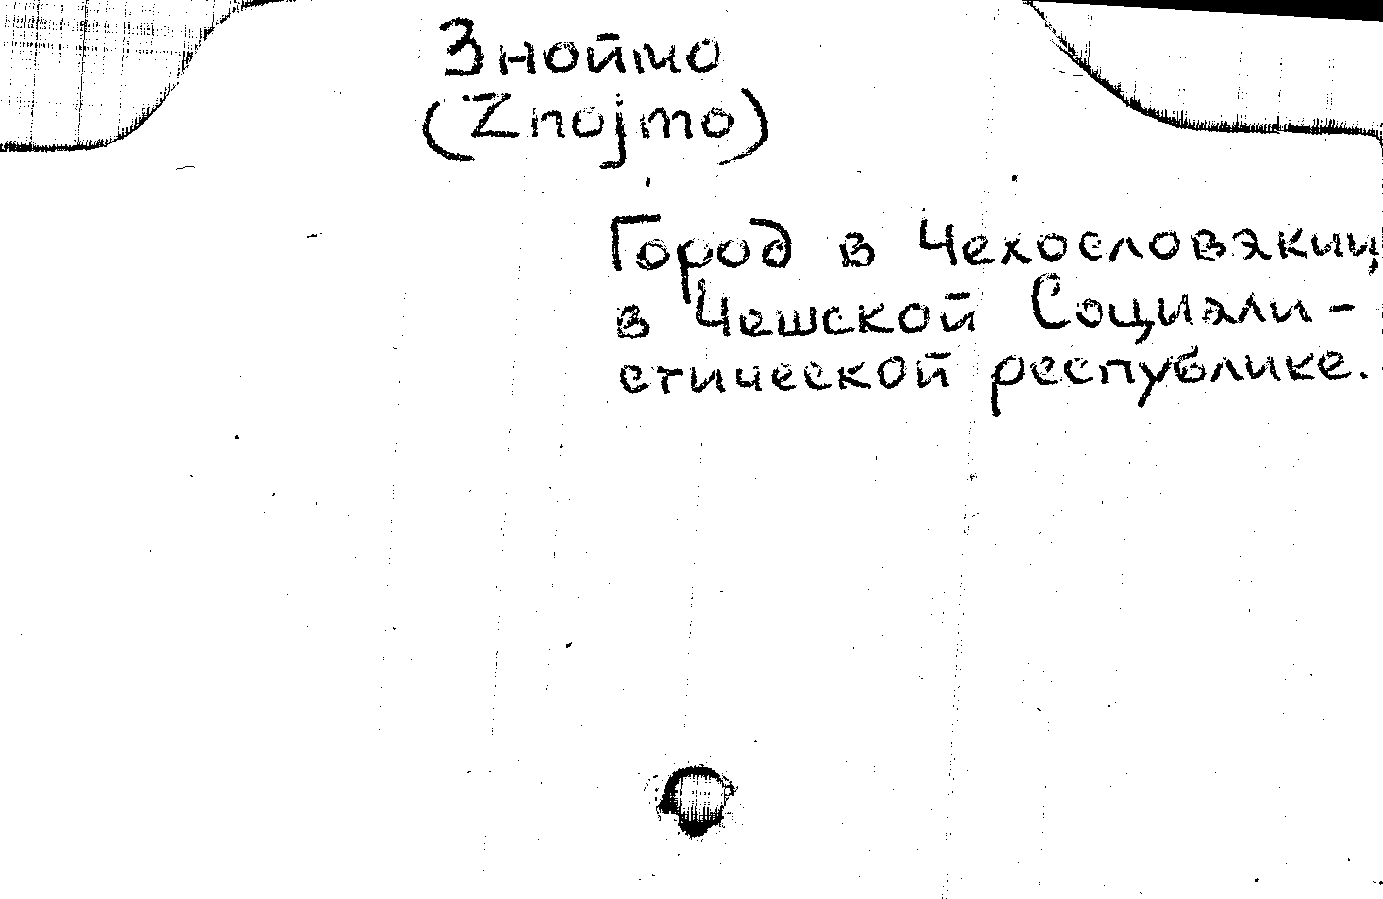 Зноймо
(Znojmo)
Город в Чехословакии,
в Чешской Социали-
стической республике.